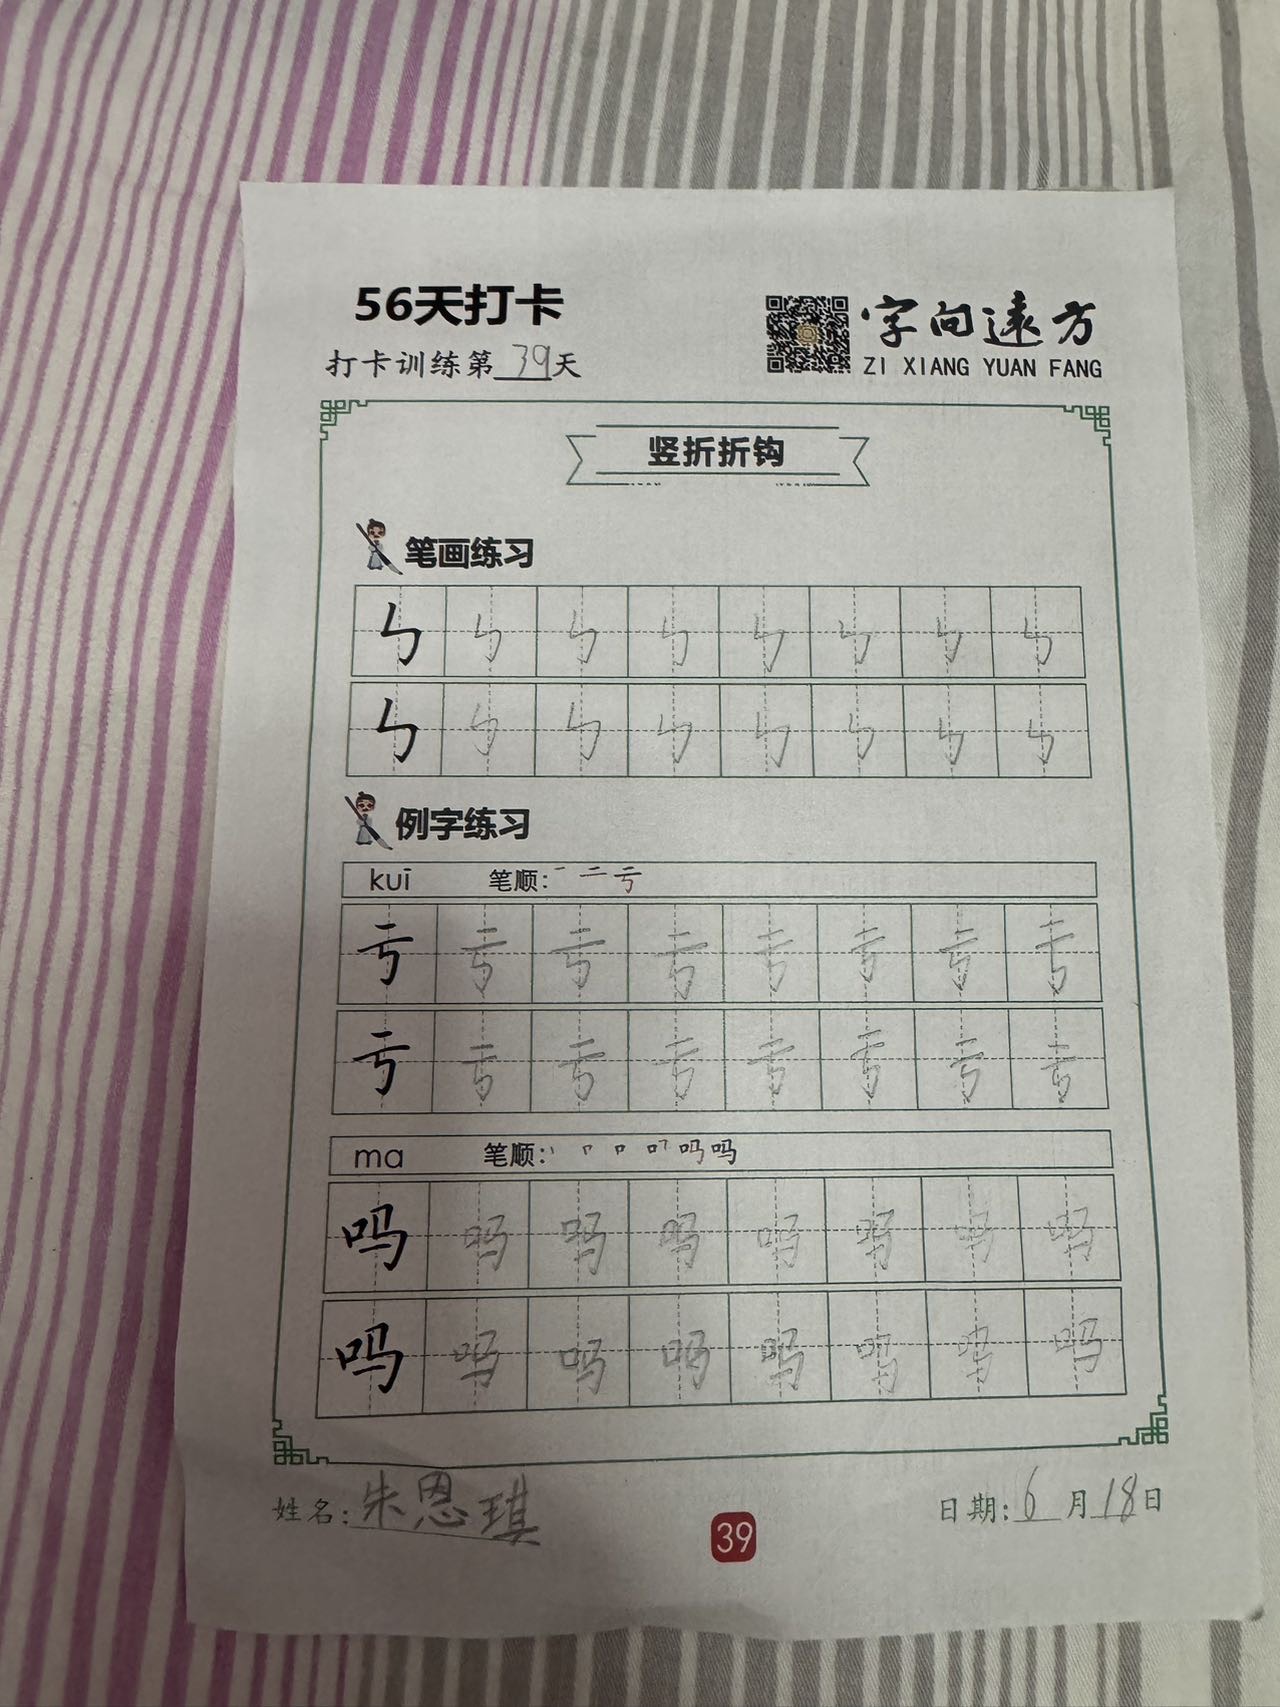 56天打卡
字向遠方
打卡训练第39天
ZI XIANG YUAN FANG
竖折折钩
笔画练习
ㄣ ㄣ ㄣ ㄣ ㄣ ㄣ ㄣ ㄣ
ㄣ ㄣ ㄣ ㄣ ㄣ ㄣ ㄣ ㄣ
例字练习
kuī 笔顺: 一 二 亏
亏 亏 亏 亏 亏 亏 亏 亏
亏 亏 亏 亏 亏 亏 亏 亏
ma 笔顺: 丨 𠃍 口 吗 吗
吗 吗 吗 吗 吗 吗 吗 吗
吗 吗 吗 吗 吗 吗 吗 吗
姓名: 朱恩琪
日期: 6月18日
39